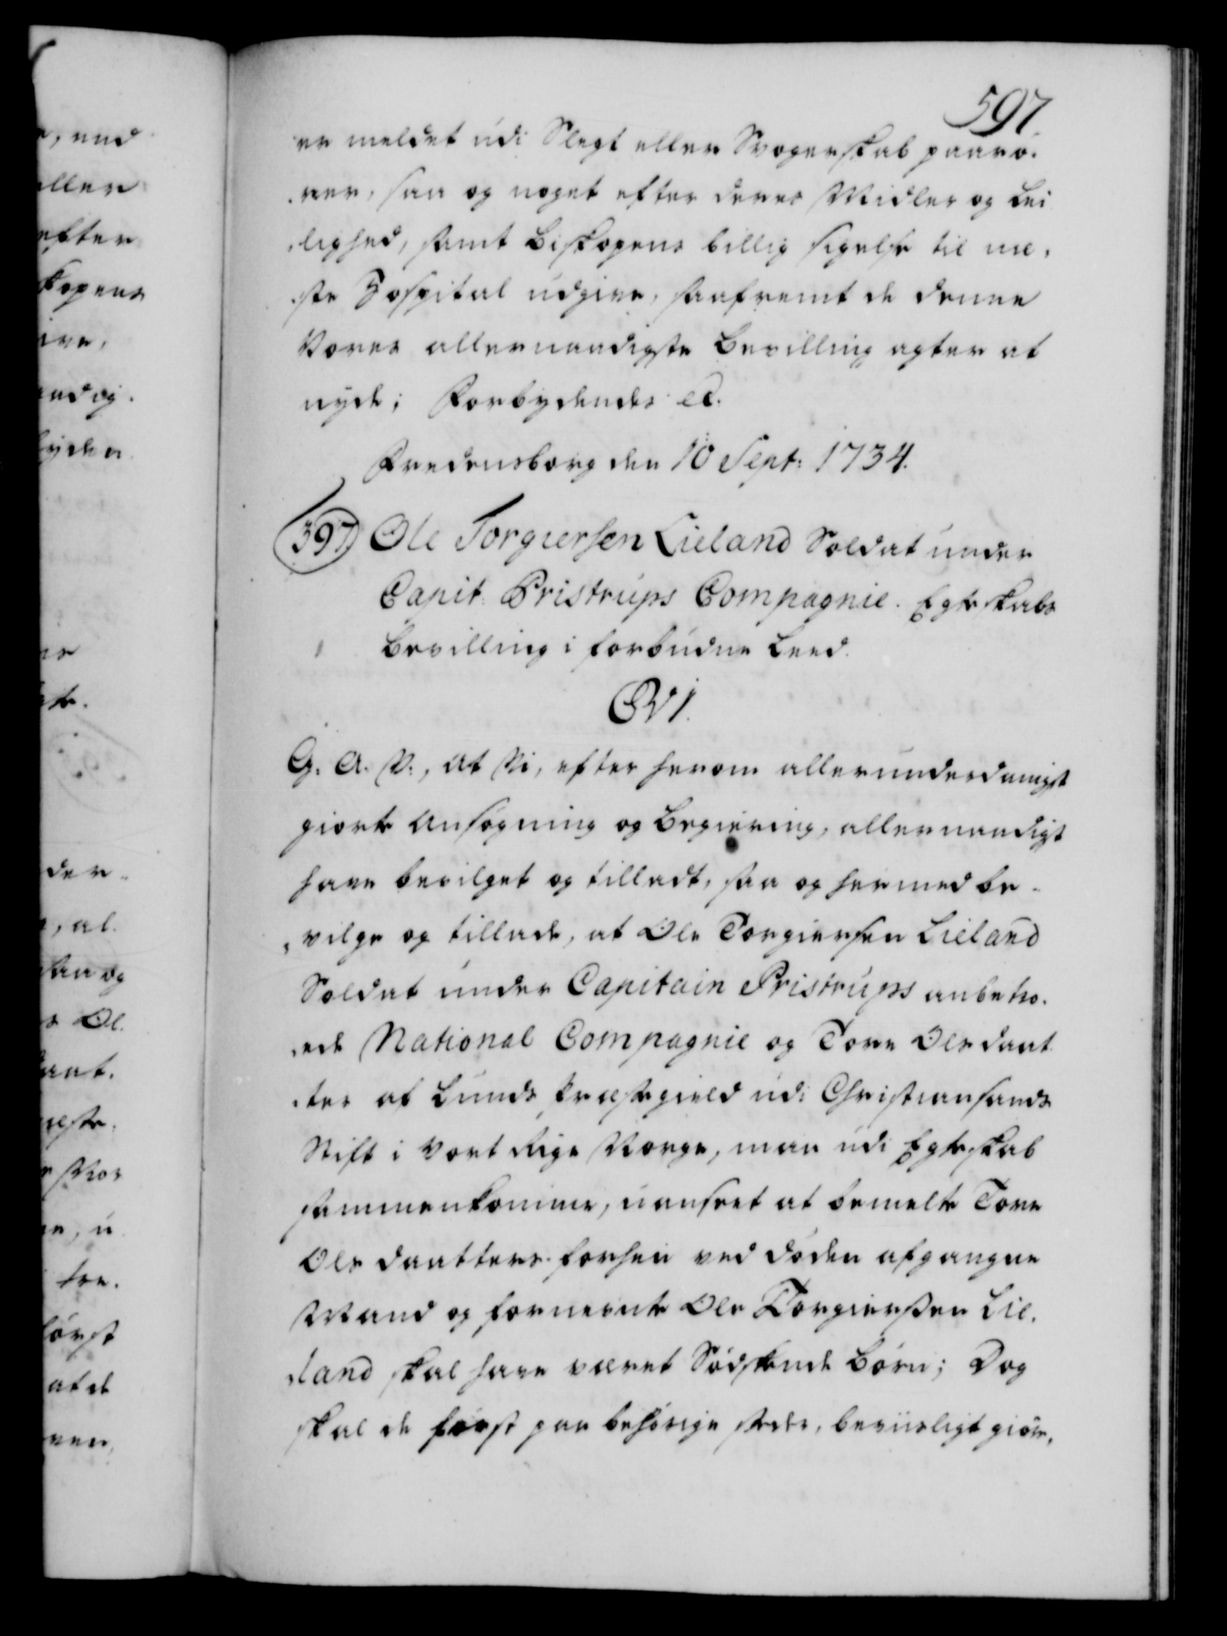 597
er meldet udi Slegt eller Svogerskab paarö-
rer, saa og noget efter deres Midler og Lei
lighed, samt Biskopens billig sigelse til næ-
ste Hospital udgive, saafremt de denne
Vores allernaadigste Bevilling agter at
nyde; Forbydendes ec.
Fredensborg den 10 Sept: 1734.
397) Ole Torgiersen Lieland Soldat under
Capit. Pristrups Compagnie. Egteskabs
Bevilling i forbudne Leed.
CVI.
G. A. V:, at Vi, efter herom allerunderdanigst
giorte Ansögning og Begiering, allernaadigst
have bevilget og tilladt, saa og hermed be-
vilge og tillade, at Ole Torgiersen Lieland
Soldat under Capitain Pristrups anbetro-
ede National Compagnie og Tore Olsdaat
ter af Lunds Præstegield udi Christiansands
Stift i Vort Rige Norge, maa udi Egteskab
sammenkomme, uanseet at bemelte Tore
Ols daatters forhen ved döden afgangne
Mand og fornevnte Ole Torgiersen Lie-
land skal have været Södskende Börn; Dog
skal de först paa behörige stæder, beviisligt giöre,
ller
efter
kopens
ive,